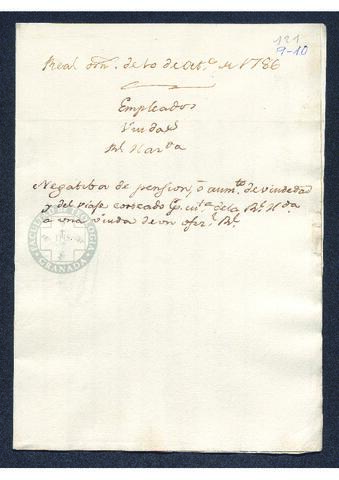 121
9-10
Real orn. de 10 de Oct.e de 1786
Empleados
Viudas
Rl. Hazda
Negativa de pension, ó aumto. de viudedad
y del viaje costeado de la Rl. Hda.
á una viuda de un Rl.
FACULTAD DE TEOLOGIA
GRANADA